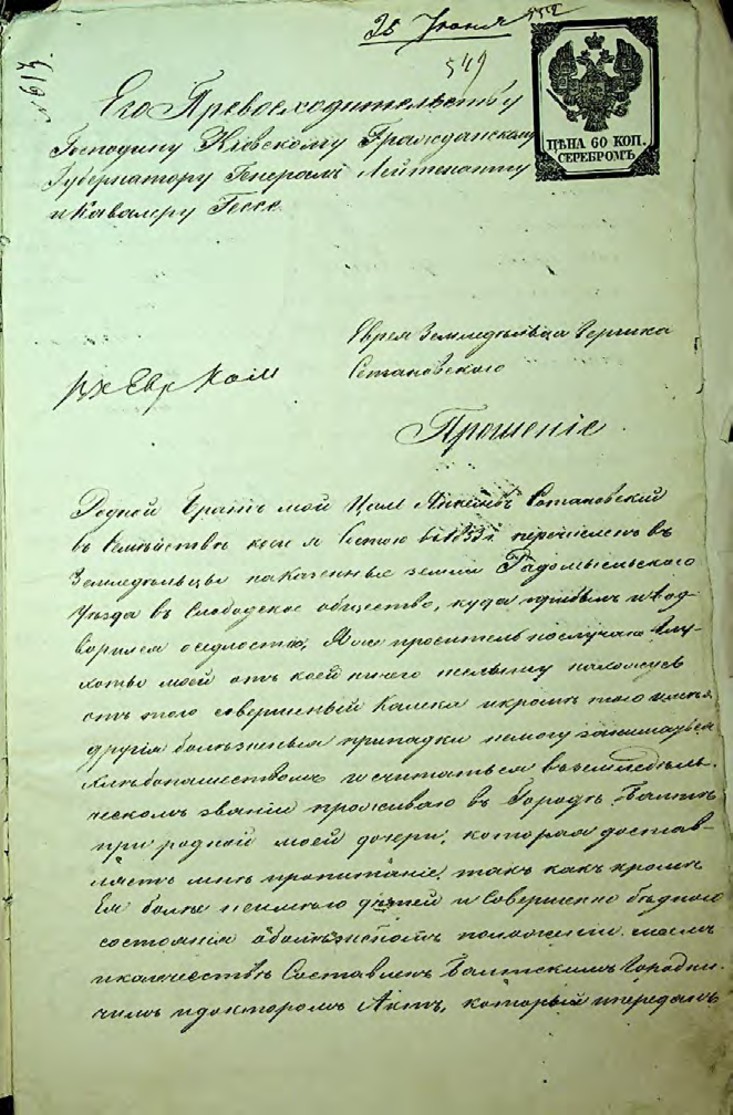 25 Июня
549
№ 619
ЦѢНА 60 КОП.
СЕРЕБРОМЪ
Его Превосходительству
Господину Кіевскому Гражданскому
Губернатору Генералъ Лейтенанту
и Кавалеру Гессе
Еврея Земледѣльца Гершка
Сотановского
Прошеніе
Родной братъ мой Цаль Сотановский
въ Семѣйствѣ коего я Состою перечисленъ въ
Земледѣльцы на казенные земли Радомысльского
Уѣзда въ Слободское общество, куда прибылъ и вод-
ворился оседлостію, Я же проситель по случаю Глу-
хоты моей отъ коей ничего неслышу нахожусь
отъ того совершенный Калека и кромѣ того имѣя
другія болѣзненыя припадки немогу заниматься
хлѣбопашествомъ и считаться въ земледѣль-
ческомъ званіи проживаю въ Городѣ Балтѣ
при родной моей дочери, которая достав-
ляетъ мнѣ пропитаніе, такъ какъ кромѣ
Ея болѣе неимѣю дѣтей и Совершенно бѣдного
состоянія о болѣзненомъ положеніи моемъ
и калечествѣ Составленъ Балтскимъ Городни-
чимъ и докторомъ Актъ, который передалъ